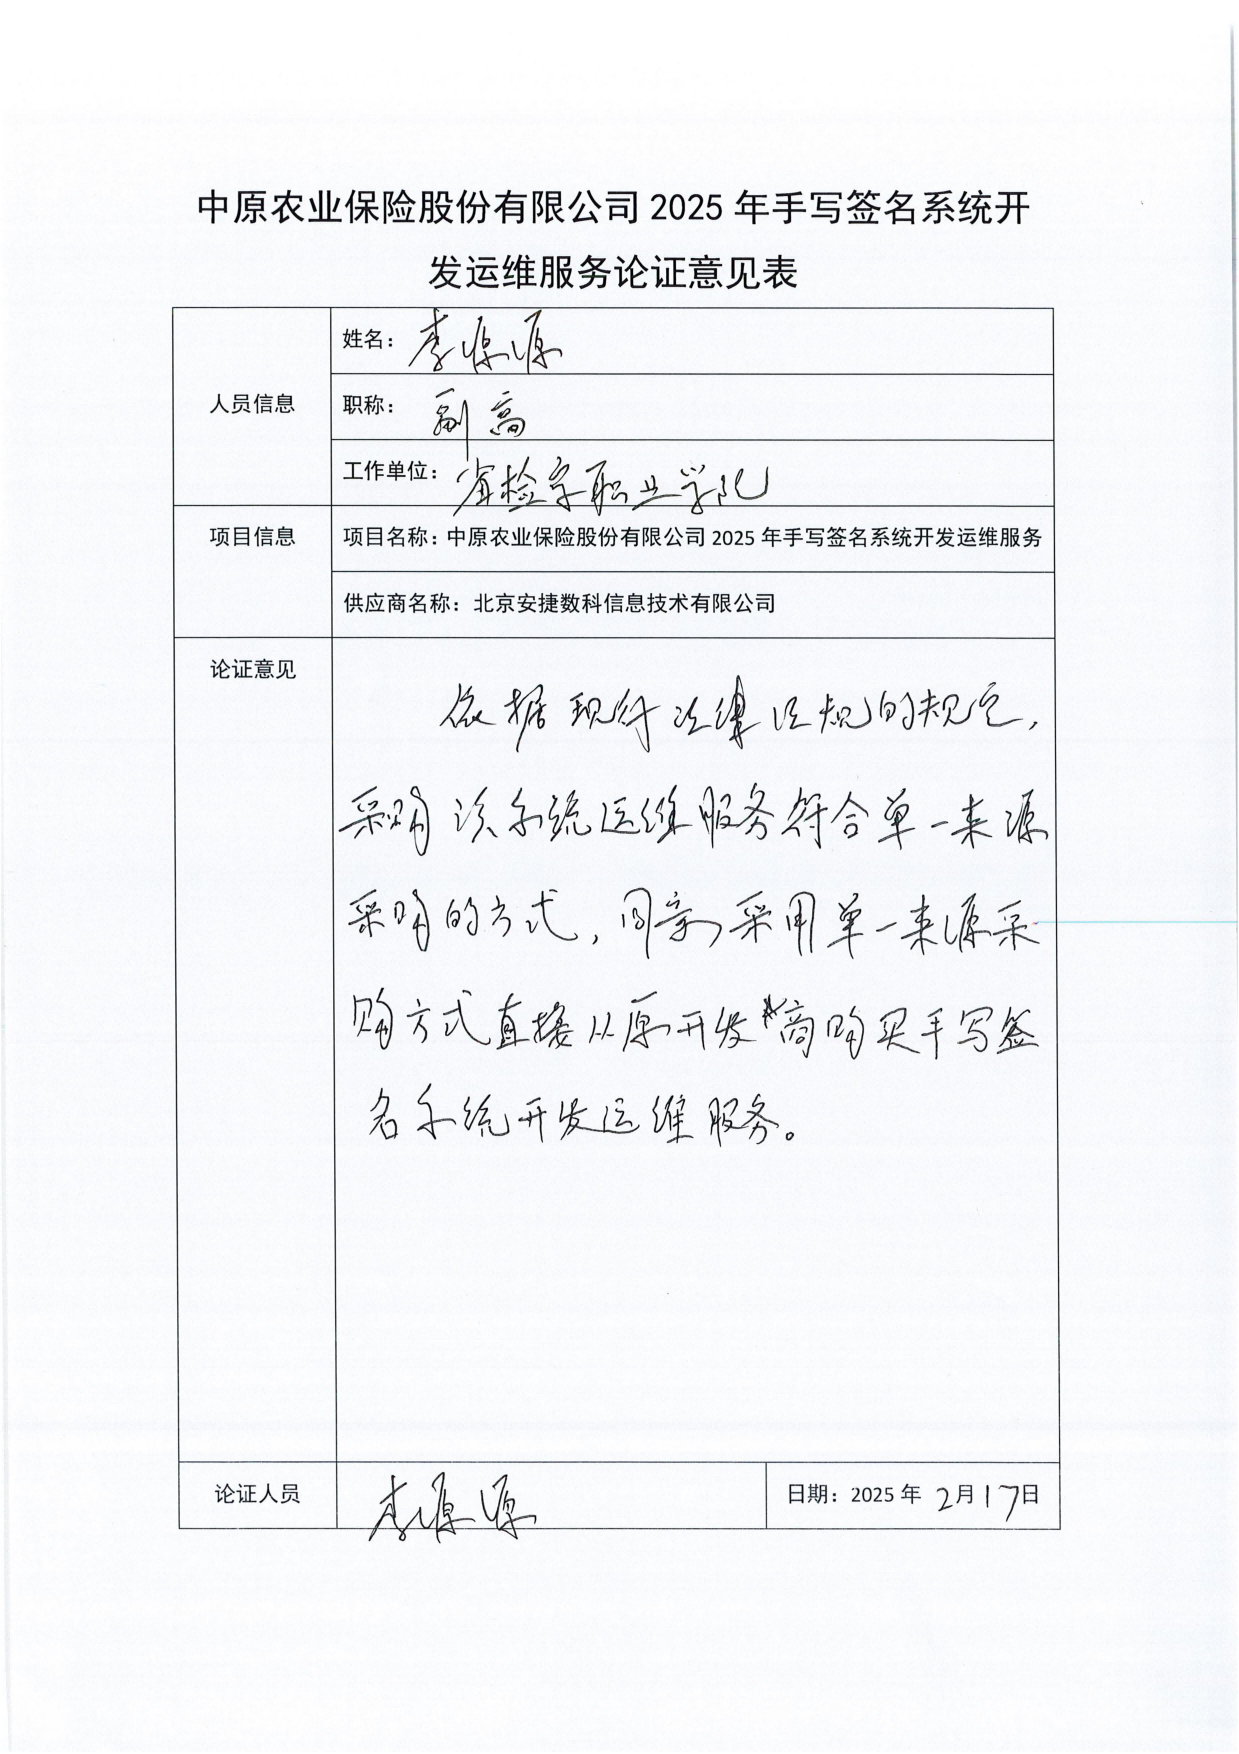 中原农业保险股份有限公司 2025 年手写签名系统开
发运维服务论证意见表
人员信息
姓名：李源源
职称：副高
工作单位：省检察职业学院
项目信息
项目名称：中原农业保险股份有限公司 2025 年手写签名系统开发运维服务
供应商名称：北京安捷数科信息技术有限公司
论证意见
依据现行法律法规的规定，
采购该系统运维服务符合单一来源
采购的方式，同意采用单一来源采
购方式直接从原开发商购买手写签
名系统开发运维服务。
论证人员
李源源
日期：2025 年 2月17日